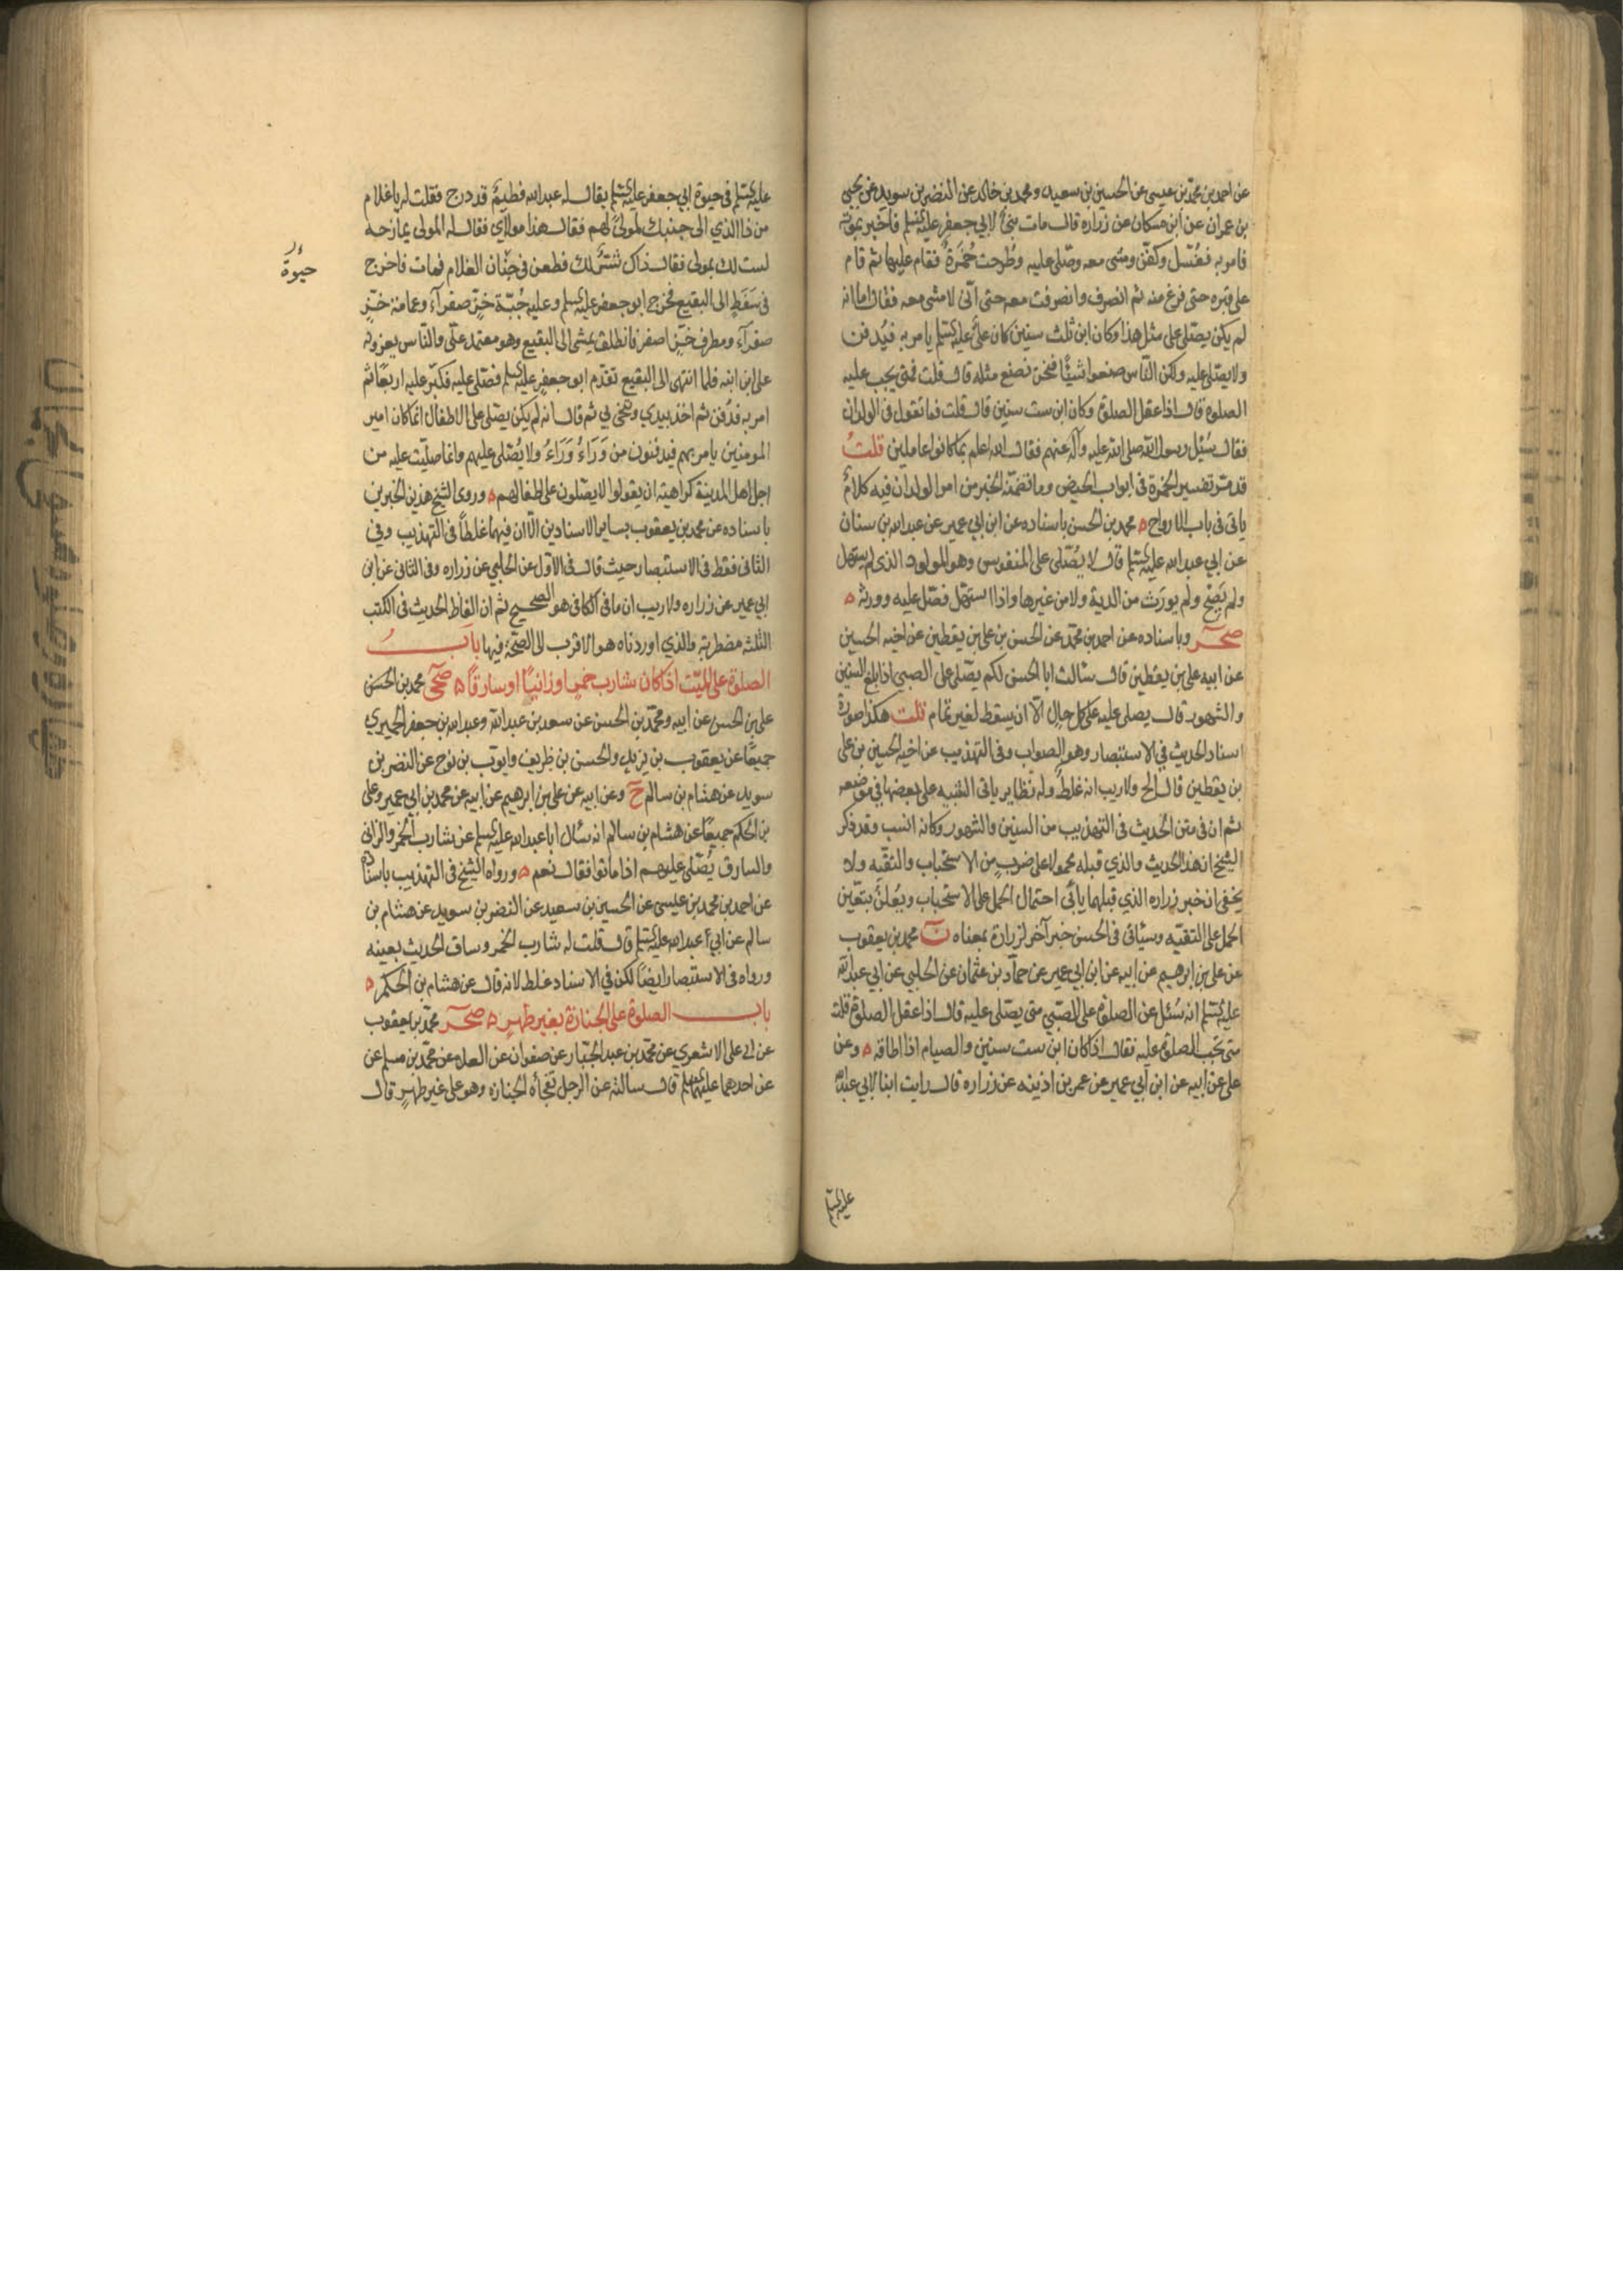 عن احمد بن محمّد بن عيسى عن الحسين بن سعيد ومحمد بن خالد عن النضر بن سويد عن يحيى
بن عمران عن ابن مسكان عن زراره قال مات بنىّ لابي جعفر عليه السلم فاخبر بموته
فامر به فغُسّل وكفّن ومشى معه وصلّى عليه وطُرحت خُمرَة فقام عليها ثم قام
على قبره حتى فرغ منه ثم انصرف وانصرفت معه حتى انّى لامشى معه فقال اما انه
لم يكن يصلى على مثل هذا وكان ابن ثلث سنين كان علىّ عليه السلم يامر به فيُدفن
ولا يصلى عليه ولكن النّاس صنعوا شيئًا فنحن نصنع مثله قال قلت فمتى يجب عليه
الصلوة قال اذا عقل الصلوة وكان ابن ست سنين قال قلت فما تقول فى الولدان
فقال سُئِل رسول الله صلى الله عليه وآله عنهم فقال الله اعلم بما كانوا عاملين قلتُ
قد مرّ تفسير الخمرة فى ابواب الحيض وما تضمّنه الخبر من امر الولدان فيه كلامٌ
ياتى فى باب الارواح ه محمد بن الحسن باسناده عن ابن ابي عمير عن عبدالله بن سنان
عن ابي عبد الله عليه السلم قال لا يُصلى على المنفوس وهو المولود الذى لم يستهل
ولم يَصِحْ ولم يورَث من الدية ولا من غيرها واذا استهلّ فصلّ عليه وورثه ه
صحر وباسناده عن احمد بن محمّد عن الحسن بن على بن يقطين عن اخيه الحسين
عن ابيه على بن يقطين قال سالت ابا الحسن لكم يصّلى على الصبي اذا بلغ السنين
والشهور قال يصلى عليه على كل حال الّا ان يسقط لغير تمام قلت هكذا صورة
اسناد الحديث في الاستبصار وهو الصواب وفى التهذيب عن اخيه الحسين بن على
بن يقطين قال الخ ولا ريب انه غلطٌ وله نظاير ياتى التنبيه على بعضها في موضعه
ثم ان فى متن الحديث فى التهذيب من السنين والشهور وكانه انسب وقد ذكر
الشيخ ان هذا الحديث والذي قبله محمولا على ضربٍ من الاستحباب والتقيّه ولا
يخفى ان خبر زراره الذي قبلهما يأبى احتمال الحمل على الاستحباب ويعُلن بتعّين
الحمل على التقيّه وسيأتى فى الحسن خبر آخر لزرارة بمعناه ن محمد بن يعقوب
عن على بن ابرهيم عن ابيه عن ابن ابي عمير عن حمّاد بن عثمان عن الحلبي عن ابي عبدالله
عليه السلم انه سُئل عن الصلوة على الصّبي متى يصّلى عليه قال اذا عقل الصلوة قلت
متى تجب الصلوة عليه فقال اذا كان ابن ست سنين والصيام اذا اطاقه ه وعن
على عن ابيه عن ابن أبي عمير عن عمر بن اذينه عن زراره قال رايت ابنا لابي عبدالله
عليه السلم
عليه السلم فى حيوة ابي جعفر عليه السلم يقال له عبدالله فطيمٌ قد درج فقلت له يا غلام
من ذا الذي الى جنبك لمولىً لهم فقال هذا مولاي فقال له المولى يمازحه
لست لك بمولى فقال ذاك شرٌّ لك فطعن فى جنان الغلام فمات فاخرج
فى سَفَطٍ الى البقيع فخرج ابو جعفر عليه السلم وعليه جُبّة خزّ صفرآء وعمامة خزّ
صفرآء ومطرف خزّ اصفر فانطلق يمشى الى البقيع وهو معتمد علىّ والنّاس يعزونه
على ابن ابنه فلما انتهى الى البقيع تقدّم ابو جعفرٍ عليه السلم فصّلى عليه فكبّر عليه اربعًا ثم
امر به فدُفن ثم اخذ بيدي وتنحّى بي ثم قال انه لم يكن يصّلى على الاطفال انّما كان امير
المومنين يامر بهم فيدفنون من وَرَاءُ وَرَاءُ ولا يُصّلى عليهم وانما صلّيت عليه من
اجل اهل المدينة كراهية ان يقولوا لا يصّلون على اطفالهم ه وروى الشيخ هذين الخبرين
باسناده عن محمد بن يعقوب بساير الاسنادين الّا ان فيهما غلطاً فى التهذيب وفي
الثانى فقط فى الاستبصار حيث قال فى الاوّل عن الحلبي عن زراره وفى الثانى عن ابن
ابي عمير عن زراره ولا ريب ان ما فى الكافى هو الصحيح ثم ان الفاظ الحديث فى الكتب
الثلثه مضطربة والذي اوردناه هو الاقرب الى الصحّة فيها بابُ
الصلوة على الميّت اذا كان شارب خمرٍ او زانيًا او سارقاً ه صحى محمد بن الحسن
على بن الحسن عن ابيه ومحمّد بن الحسن عن سعد بن عبدالله وعبدالله بن جعفر الحميري
جميعًا عن يعقوب بن يزيد والحسن بن ظريف وايّوب بن نوح عن النضر بن
سويد عن هشام بن سالم ح وعن ابيه عن على بن ابرهيم عن ابيه عن محمد بن ابي عمير وعلى
بن الحكم جميعًا عن هشام بن سالم انه سئال ابا عبدالله عليه السلم عن شارب الخمر والزانى
والسارق يُصّلى عليهم اذا ماتوا فقال نعم ه ورواه الشيخ فى التهذيب باسناده
عن احمد بن محمد بن عيسى عن الحسين بن سعيد عن النضر بن سويد عن هشام بن
سالم عن ابي عبدالله عليه السلم قال قلت له شارب الخمر وساق الحديث بعينه
ورواه فى الاستبصار ايضًا لكن في الاسناد غلط لانه قال عن هشام بن الحكم ه
باب الصلوة على الجنازة بغير طهرٍ ه صحر محمّد بن يعقوب
عن ابى على الاشعري عن محمّد بن عبد الجبّار عن صفوان عن العلاء عن محمّد بن مسلم عن
عن احدهما عليهما السلم قال سالته عن الرجل تفجأه الجنازه وهو على غير طهرٍ قال
حيوة